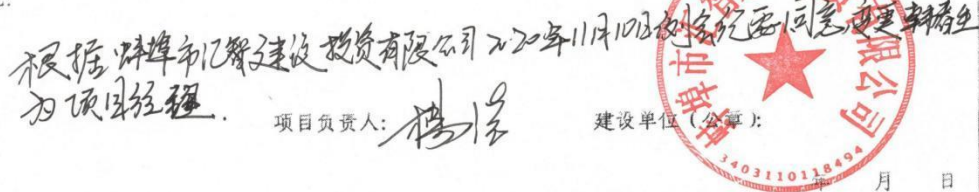 根据蚌埠市亿智建设投资有限公司2020年11月10日例会纪要同意变更韩春生
为项目经理.
项目负责人: 建设单位(公章):
蚌埠市 限公司
3403110118494
年 月 日